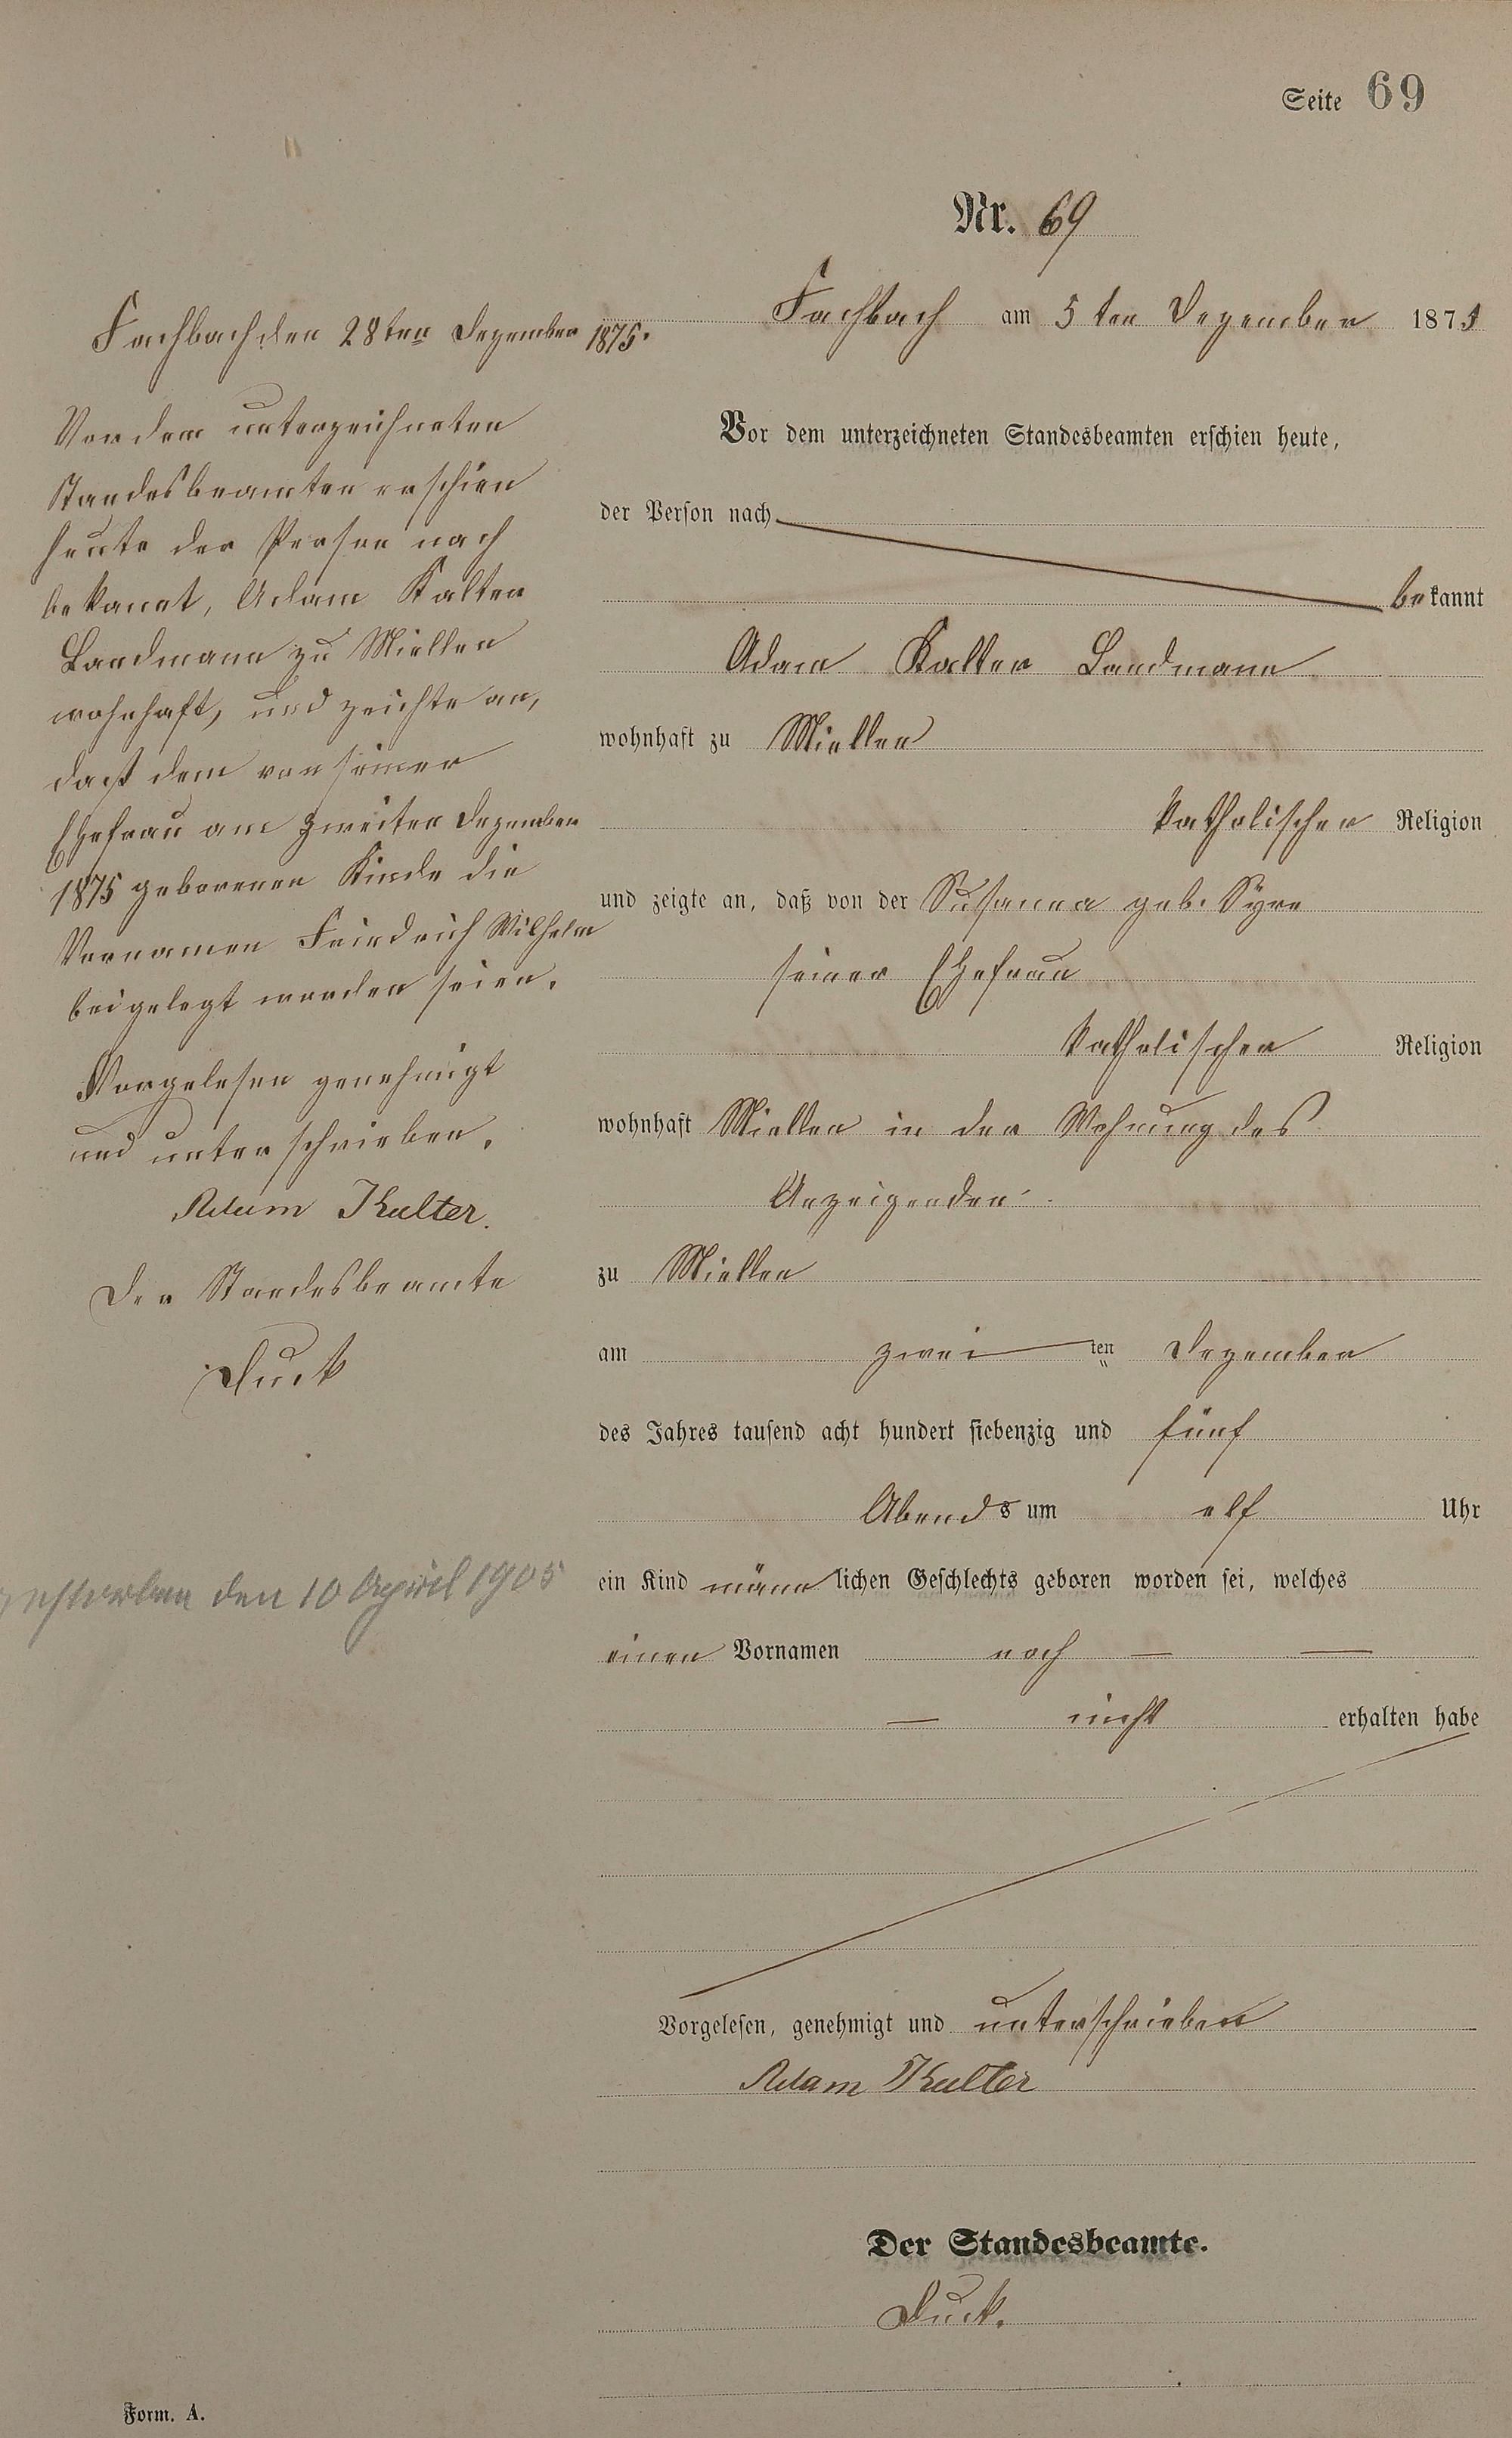 Seite 69
Nr. 69
Fachbach am 5ten Dezember 1875
Vor dem unterzeichneten Standesbeamten erschien heute,
der Person nach
bekannt
Adam Kalter Landmann
wohnhaft zu Miellen
katholischer Religion
und zeigte an, daß von der Susanna geb. Syre
seiner Ehefrau
katholischer Religion
wohnhaft Miellen in der Wohnung des
Anzeigenden
zu Miellen
am zwei ten Dezember
des Jahres tausend acht hundert siebenzig und fünf
Abends um elf Uhr
ein Kind männlichen Geschlechts geboren worden sei, welches
einen Vornamen noch — —
— nicht erhalten habe
Vorgelesen, genehmigt und unterschrieben
Adam Kalter
Der Standesbeamte.
Duck.
Fachbach den 28ten Dezember 1875.
Vor dem unterzeichneten
Standesbeamten erschien
heute der Person nach
bekannt, Adam Kalter
Landmann zu Miellen
wohnhaft, und zeichte an,
daß dem von seiner
Ehefrau am zweiten Dezember
1875 geborenen Kinde die
Vornamen Friedrich Wilhelm
beigelegt worden seien.
Vorgelesen genehmigt
und unterschrieben.
Adam Kalter.
Der Standesbeamte
Duck
gestorben den 10 April 1905
Form. A.